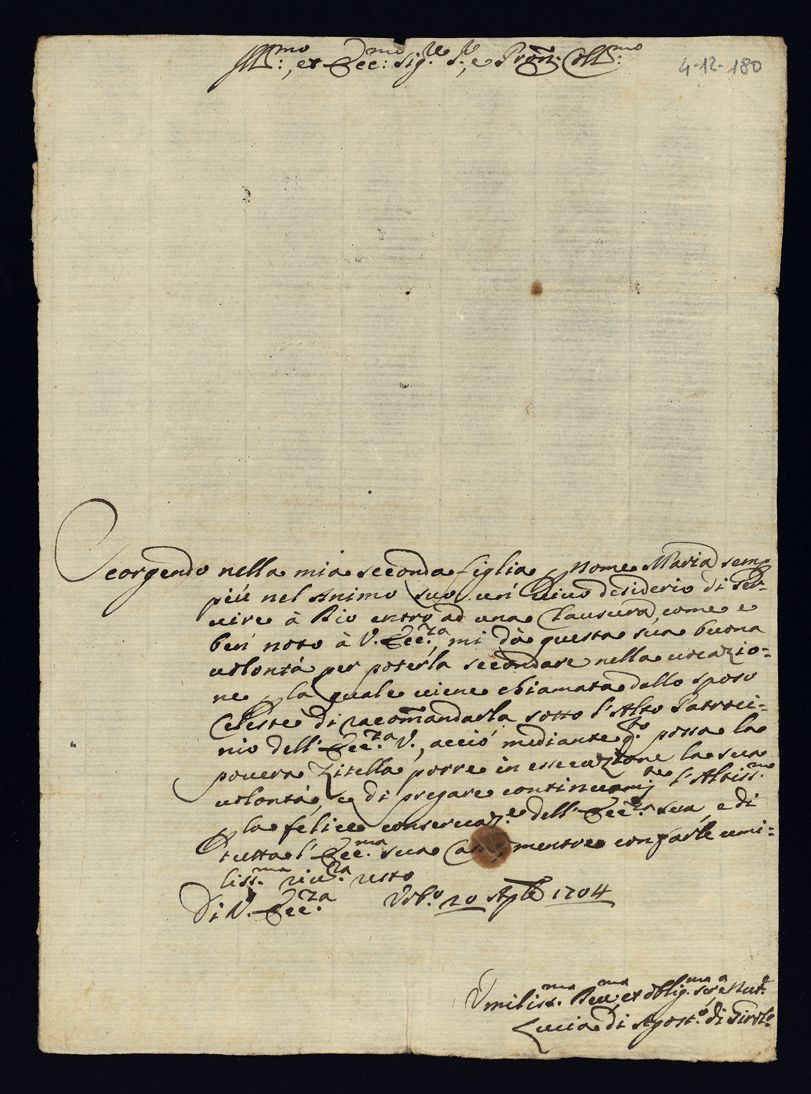 Ill.mo, et Ecc.mo Sig.re S.r, e Pron. Coll.mo
4-12-180
Scorgendo nella mia seconda figlia, nome Maria sem
più nel Animo suo un vivo desiderio di ser-
vire à Dio entro ad una Clausura, come e
ben noto à V. Ecc.za mi dà questa sua buona
volontà per poterla secondare nella vocazio=
ne, la quale viene chiamata dallo sposo
Celeste di racomandarla sotto l'Alto Patroci-
nio dell'Ecc.za V., acciò mediante q.to possa la
povera Zitella porre in essecuzione la sua
volontà, e di pregare continuam.te l'Altiss.mo
la felice conservaz.e dell'Ecc.za sua, e di
tutta l'Ecc.ma sua mentre con farle umi-
liss.ma riv.za resto
Di V. Ecc.za 20 1704
Umiliss.ma et oblig.ma
Lucia di Agost.o di